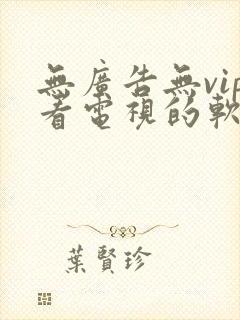 無廣告無vip
看電視的軟
葉賢珍